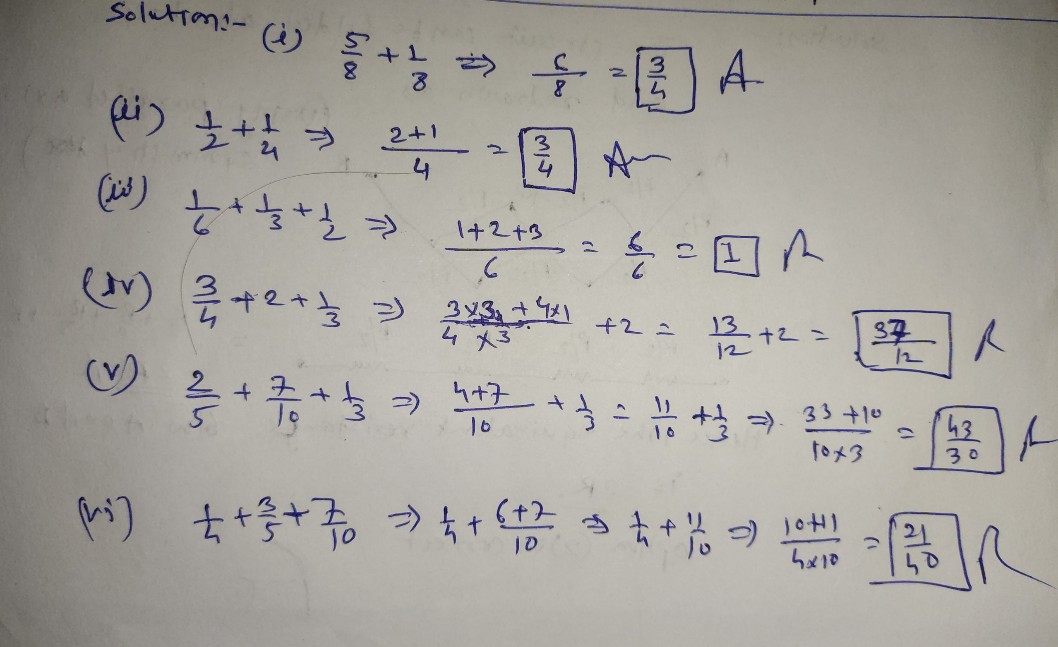 Solution:- (i) 5/8 + 1/8 ⇒ 6/8 = 3/4 A
(ii) 1/2 + 1/4 ⇒ 2+1/4 = 3/4 A
(iii) 1/6 + 1/3 + 1/2 ⇒ 1+2+3/6 = 6/6 = 1
(iv) 3/4 + 2 + 1/3 ⇒ 3×3 + 4×1/4×3 + 2 = 13/12 + 2 = 37/12
(v) 2/5 + 7/10 + 1/3 ⇒ 4+7/10 + 1/3 = 11/10 + 1/3 ⇒ 33+10/10×3 = 43/30
(vi) 1/4 + 3/5 + 7/10 ⇒ 1/4 + 6+7/10 ⇒ 1/4 + 11/10 ⇒ 10+11/4×10 = 21/40